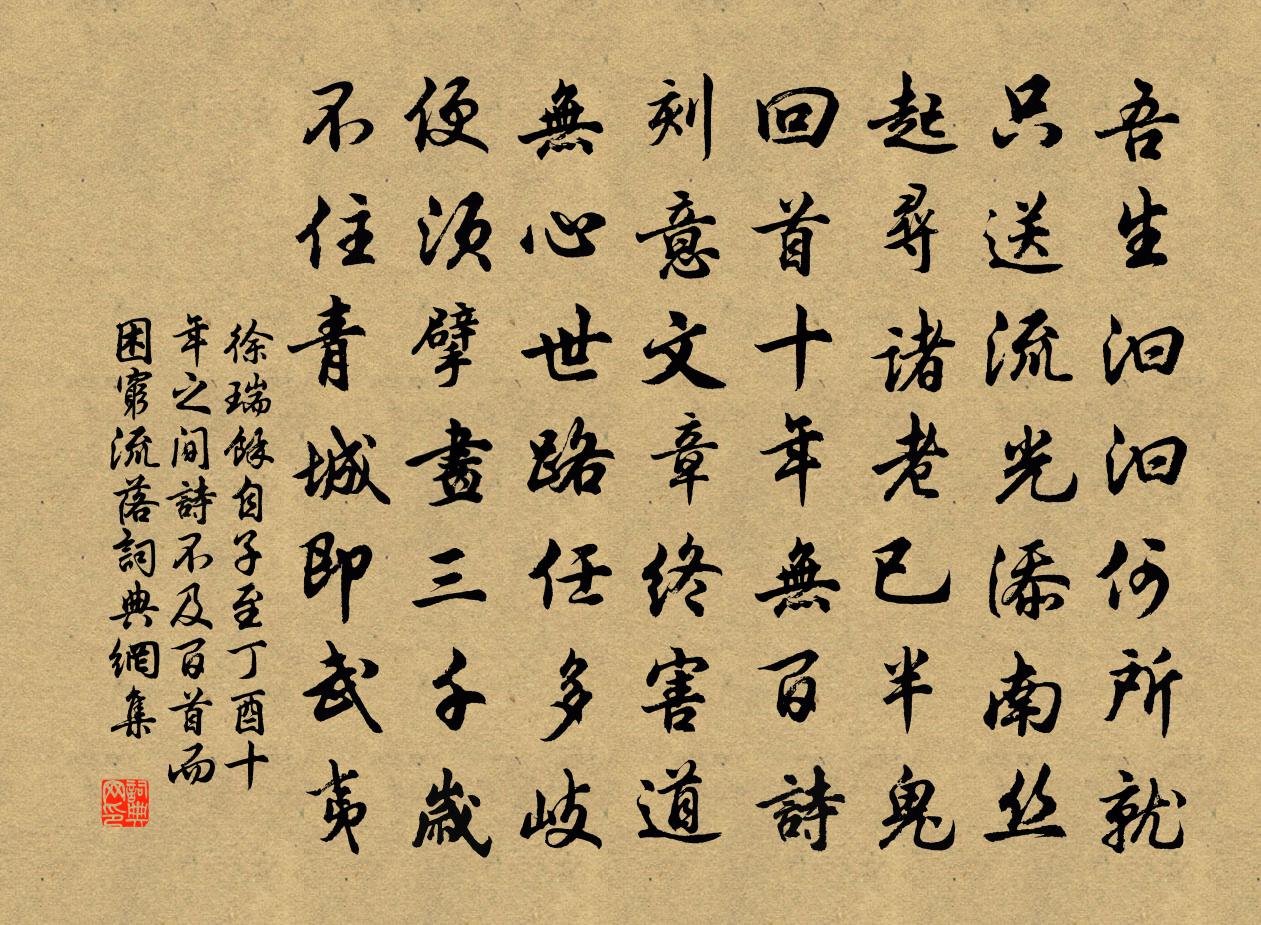 吾生汩汩何所就
只送流光添南丝
起尋諸老已半鬼
回首十年無百詩
刻意文章終害道
無心世路任多岐
便須擘畫三千歲
不住青城即武夷
徐瑞餘自子至丁酉十
年之间詩不及百首而
困窮流落詞典網集
詞典网印